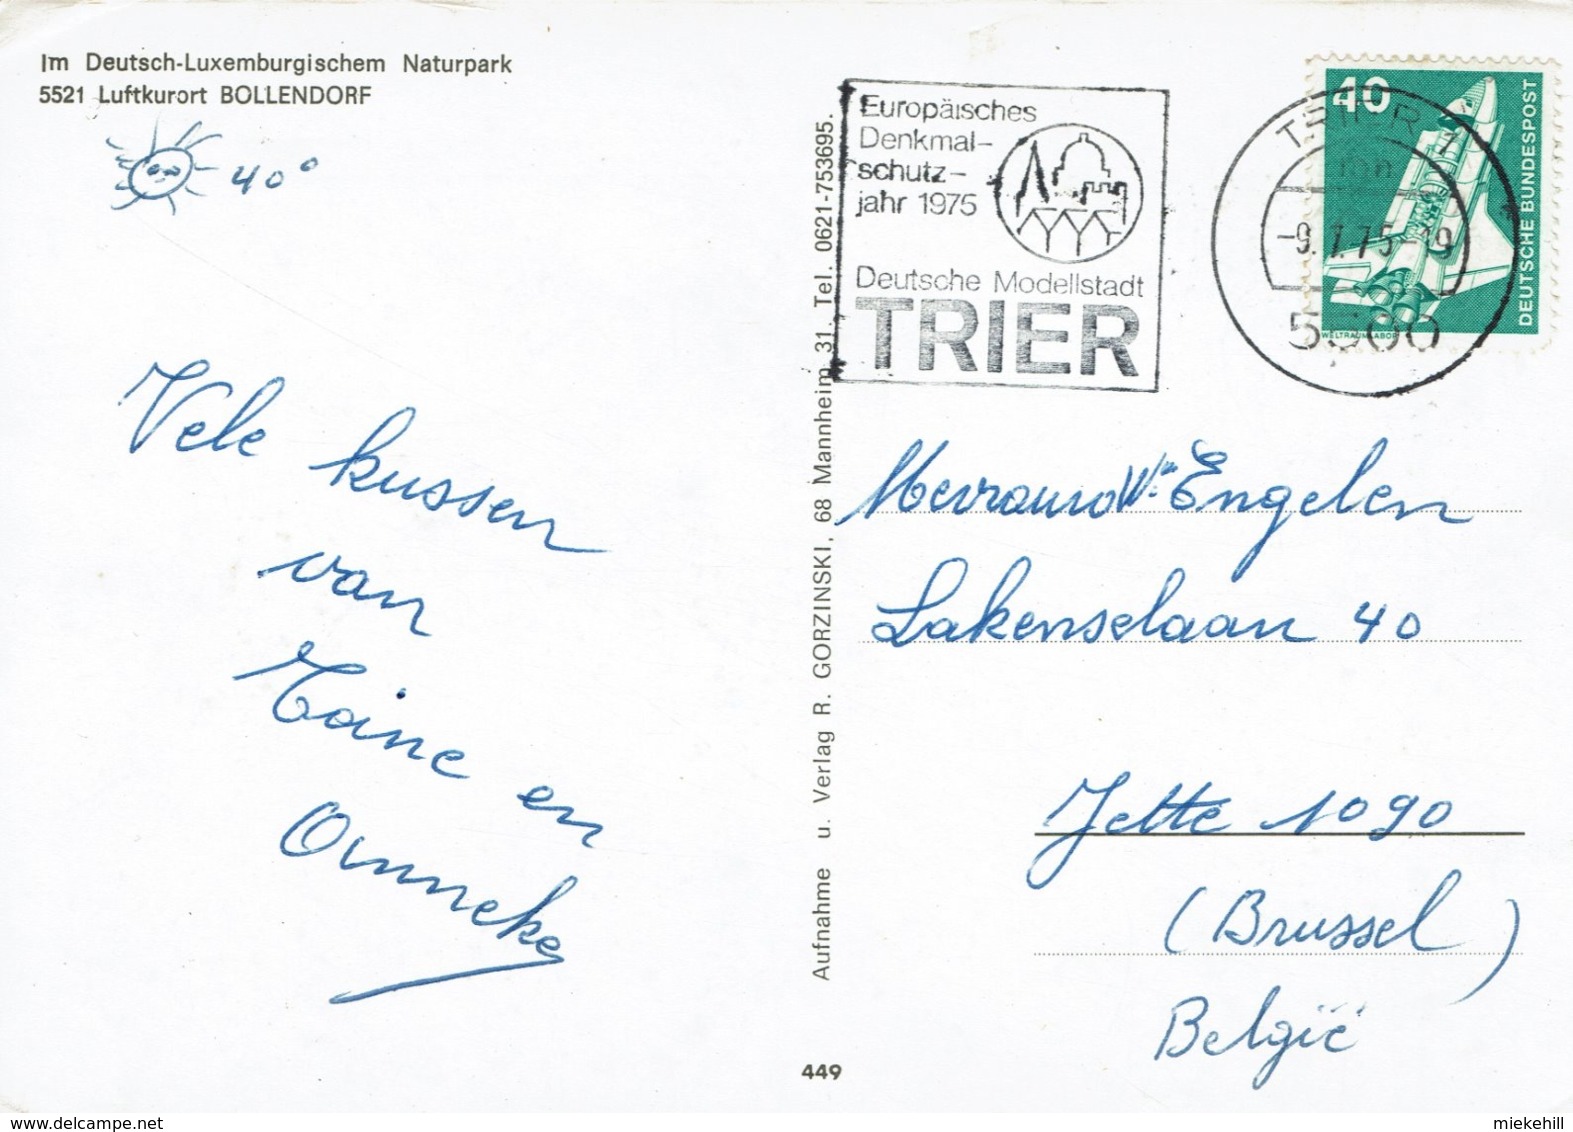 Im Deutsch-Luxemburgischem Naturpark
5521 Luftkurort BOLLENDORF
40°
Vele kussen
van
en
Onneke
Aufnahme u. Verlag R. GORZINSKI, 68 Mannheim 31. Tel. 0621-753695.
449
Europäisches
Denkmal-
schutz-
jahr 1975
Deutsche Modellstadt
TRIER
TRIER 1
mn
-9.7.75-19
5500
40
DEUTSCHE BUNDESPOST
WELTRAUMLABOR
Engelen
Lakenselaan 40
Jette 1090
(Brussel)
België
www.delcampe.net
miekehill